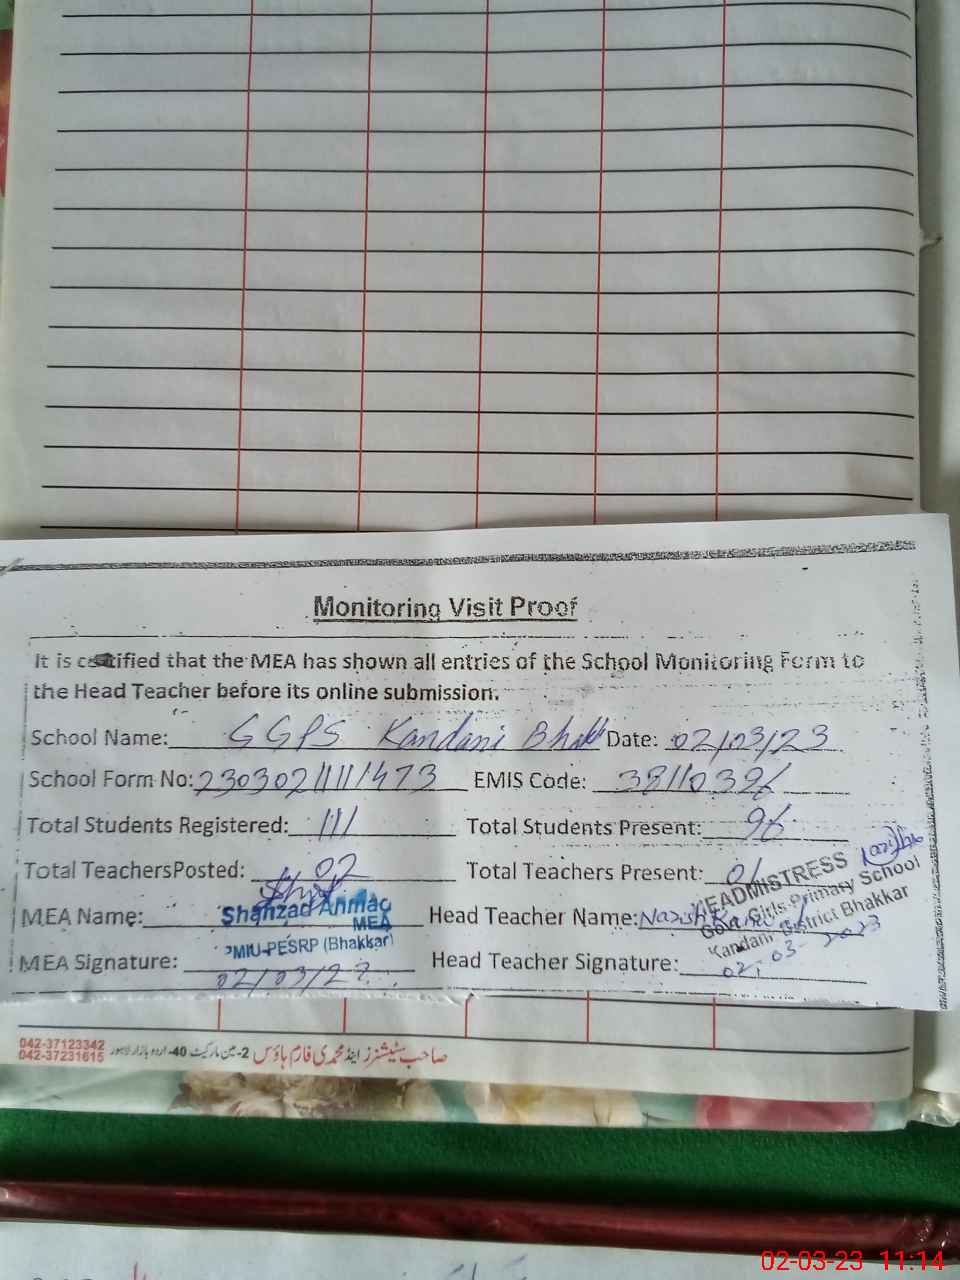 Monitoring Visit Proof
It is certified that the MEA has shown all entries of the School Monitoring Form to
the Head Teacher before its online submission.
School Name: GGPS Kandani Bhakk Date: 02/03/23
School Form No: 23030211111473 EMIS Code: 38110396
Total Students Registered: 111 Total Students Present: 96
Total TeachersPosted: 02 Total Teachers Present: 01
MEA Name: Shahzad Ahmad Head Teacher Name: Nazish
MEA
MIU-PESRP (Bhakkar)
MEA Signature: Head Teacher Signature:
02/03/23
HEADMISTRESS
Govt. Girls Primary School
Kandani District Bhakkar
02-03-2023
042-37123342
042-37231615
صاحب سٹیشنرز اینڈ محمدی فارم ہاؤس 2-مین مارکیٹ 40-اردو بازار لاہور
02-03-23 11:14